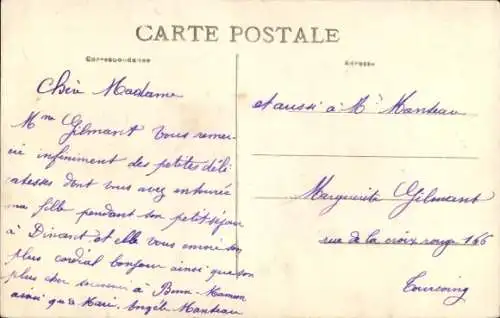 CARTE POSTALE
Correspondance
Adresse
Chère Madame
Mme Gilmant vous remer-
cie infiniment des petites déli-
catesses dont vous avez entourée
ma fille pendant son petit séjour
à Dinant et elle vous envoie son
plus cordial bonjour ainsi que son
plus cher souvenir à Bonn-Maman
ainsi qu'à Marie, Angèle Manteau
et aussi à Mr Manteau
Marguerite Gilmant
rue de la croix rouge 166
Tourcoing